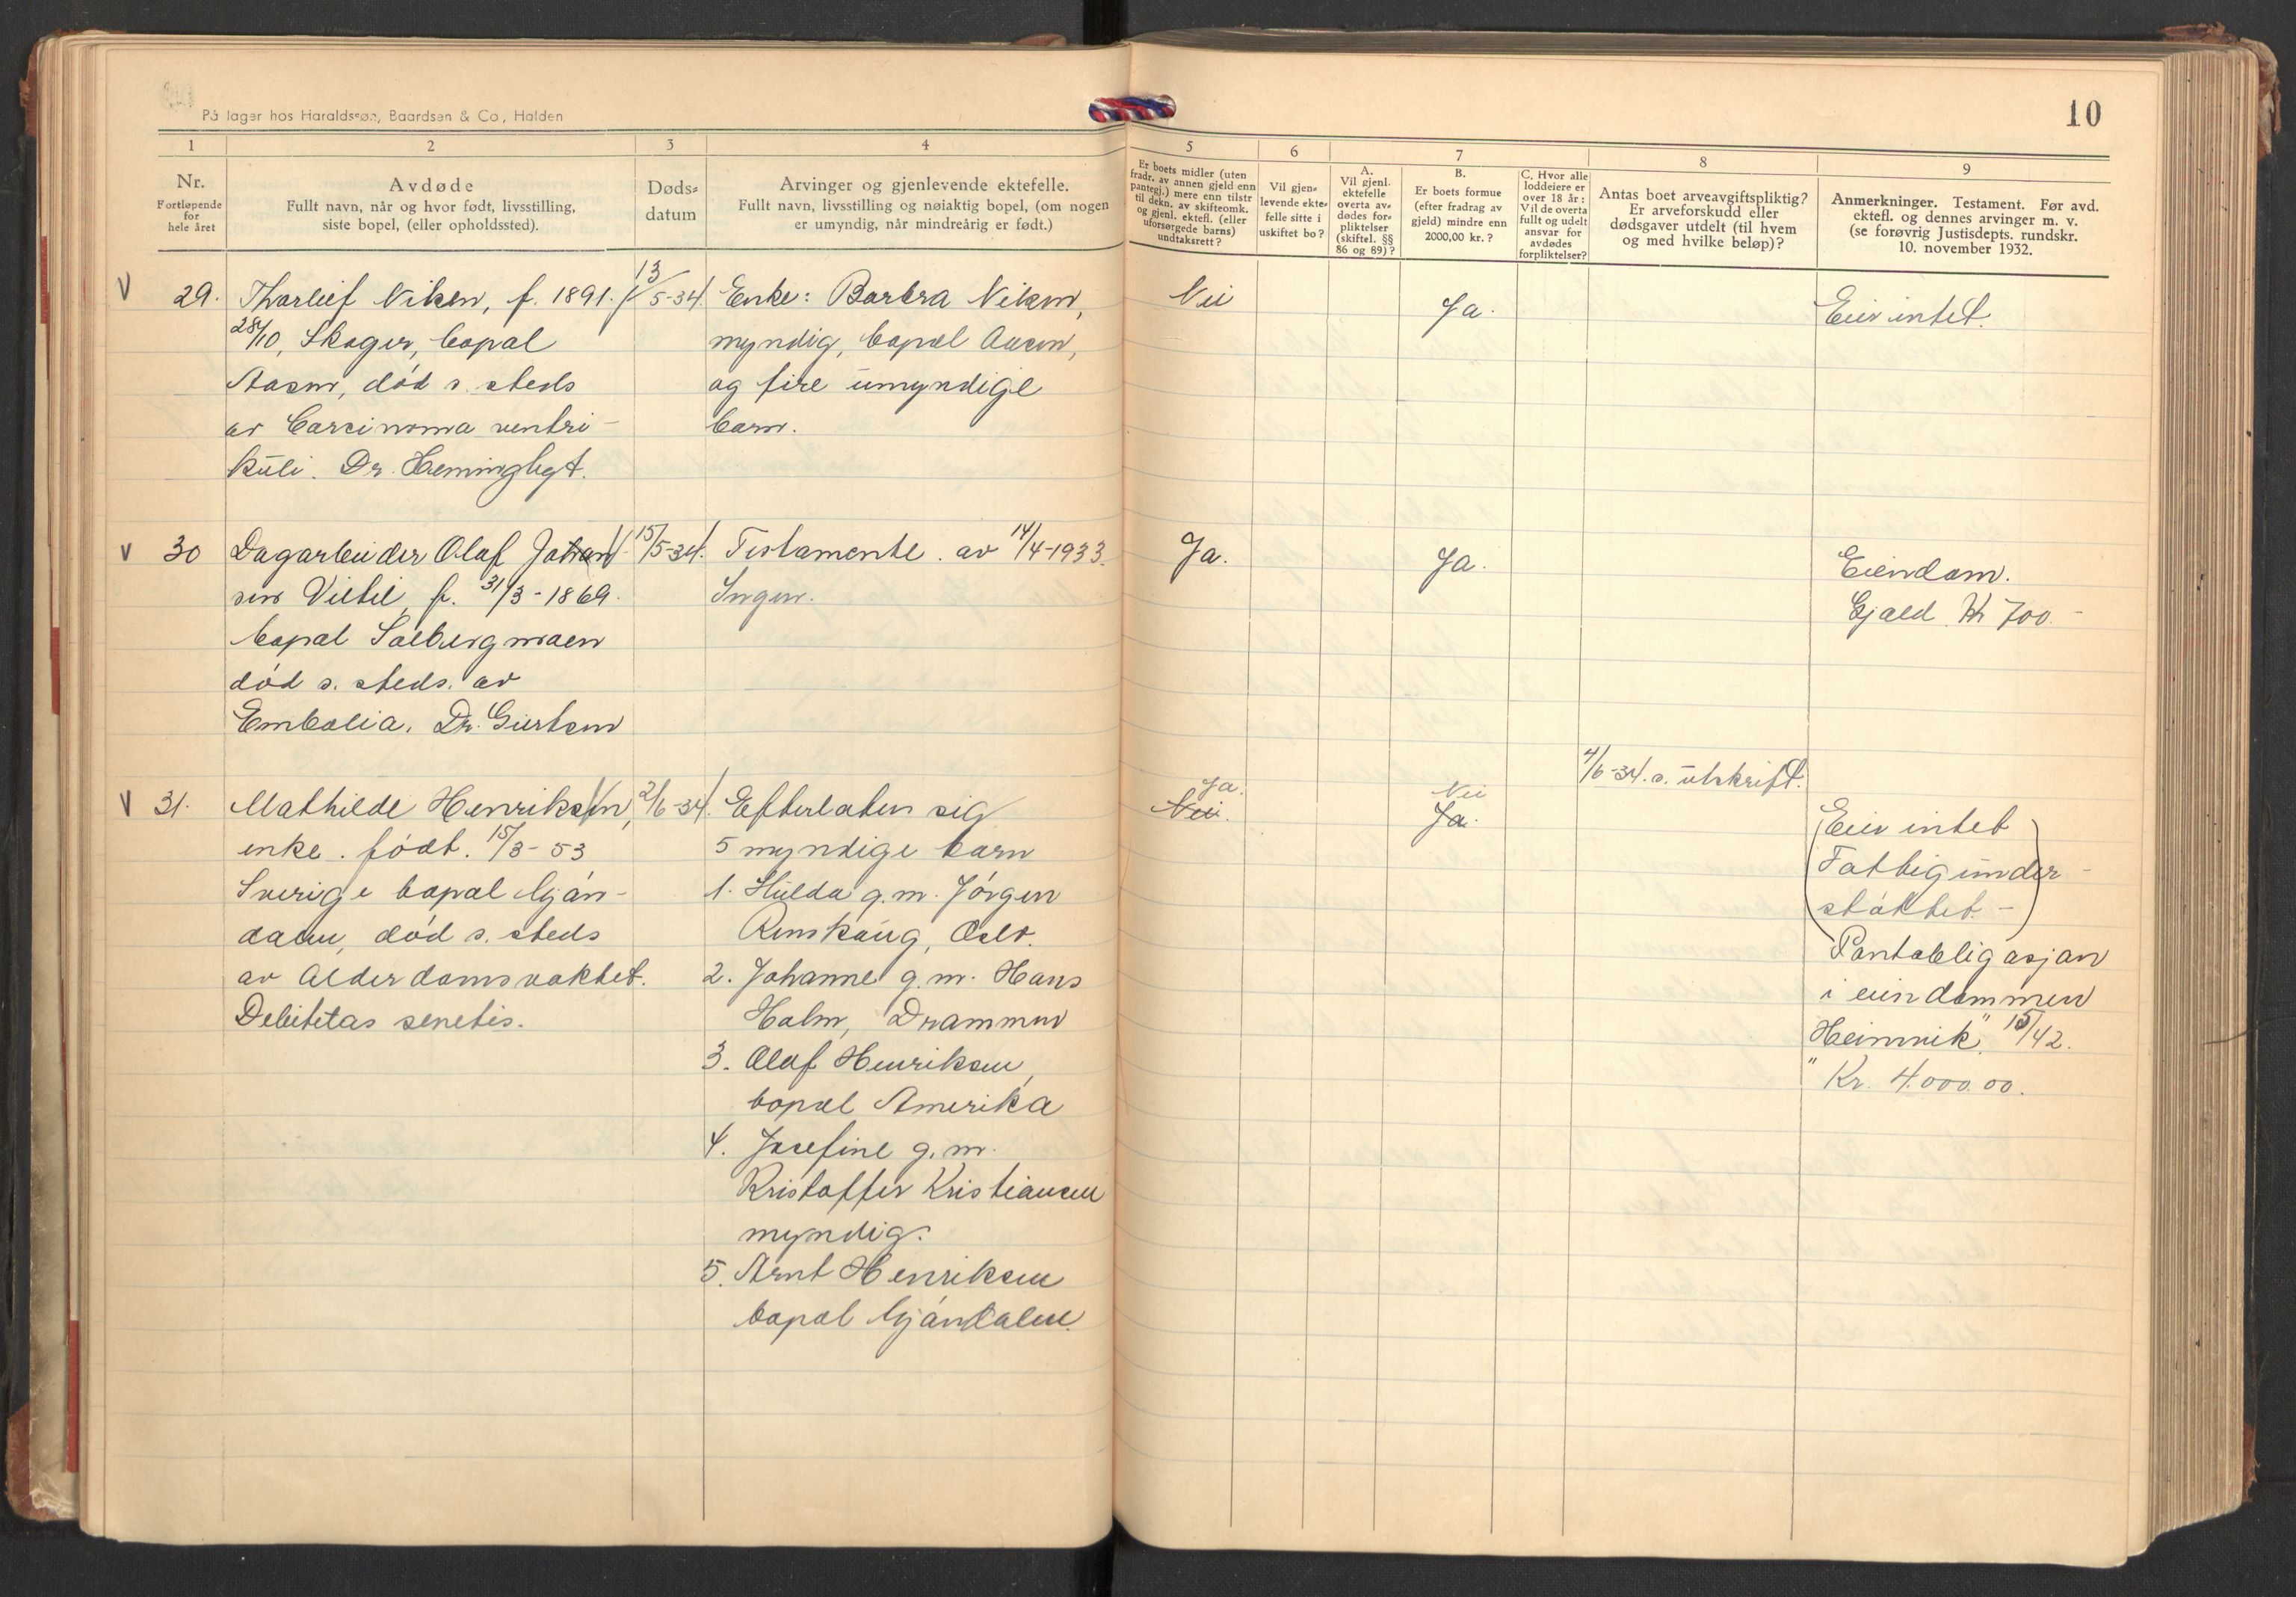 På lager hos Haraldssøn, Baardsen & Co., Halden
10
1
2
3
4
5
6
7
8
9
Nr.
Fortløpende
for
hele året
Avdøde
Fullt navn, når og hvor født, livsstilling,
siste bopel, (eller opholdssted).
Døds-
datum
Arvinger og gjenlevende ektefelle.
Fullt navn, livsstilling og nøiaktig bopel, (om nogen
er umyndig, når mindreårig er født.)
Er boets midler (uten
fradr. av annen gjeld enn
pantegj.) mere enn tilstr
til dekn. av skifteomk.
og gjenl. ektefl. (eller
uforsørgede barns)
undtaksrett?
Vil gjen-
levende ekte-
felle sitte i
uskiftet bo?
A.
Vil gjenl.
ektefelle
overta av-
dødes for-
pliktelser
(skiftel. §§
86 og 89)?
B.
Er boets formue
(efter fradrag av
gjeld) mindre enn
2000,00 kr.?
C. Hvor alle
loddeiere er
over 18 år:
Vil de overta
fullt og udelt
ansvar for
avdødes
forpliktelser?
Antas boet arveavgiftspliktig?
Er arveforskudd eller
dødsgaver utdelt (til hvem
og med hvilke beløp)?
Anmerkninger. Testament. Før avd.
ektefl. og dennes arvinger m. v.
(se forøvrig Justisdepts. rundskr.
10. november 1932.
V 29. Thorleif Viken, f. 1891.
28/10, Skoger, bopel
Aasen, død s. steds
av Carcinoma ventri-
kuli. Dr. Hemingbyt.
13/5-34.
Enke: Borbra Viken,
myndig, bopel Aasen,
og fire umyndige
barn.
Nei
Ja.
Eier intet.
V 30 Dagarbeider Olaf Johan
sen Vietel, f. 31/3-1869.
bopel Solbergmoen
død s. steds. av
Embolia. Dr. Giertsen
15/5-34.
Testamente. av 14/4-1933.
Ingen.
Ja.
Ja.
Eiendom.
Gjæld Kr 700.-
V 31. Mathilde Henriksen,
enke. født. 15/3-53
Sverige bopel Mjøn-
dalen, død s. steds
av Alderdomsvakhet.
Debitetas senetis.
2/6-34.
Efterlaten sig
5 myndige barn
1. Hulda g.m. Jørgen
Renskaug, Oslo.
2. Johanne g.m. Hans
Holm, Drammen
3. Olaf Henriksen,
bopel Amerika
4. Josefine g.m.
Kristoffer Kristiansen
myndig.
5. Arnt Henriksen
bopel Mjøndalen.
Ja.
Nei.
Nei
Ja.
4/6-34. s. utskrift.
(Eier intet
Fattigunder-
støttet.-)
Pantobligasjon
i eiendommen
"Heimvik" 15/42.
Kr. 4000.00.